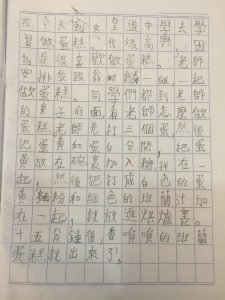 我今天到女皇道中學,去學
習做蛋糕。我很高興,因
為我很喜歡做蛋糕。老師
安排我跟 一組,一起
做蛋糕。同學們都到老師
的桌子前面,看老師怎麼做
蛋糕。老師先打三個蛋,然後
把蛋黃和蛋白分開,把蛋
黃放在碗裏加入糖,拌在一
起。然後把打成白色的蛋
黃、麵粉和綠色的班蘭汁加
在一起,就放進烘爐裏。
十五分鐘後,香噴噴的班蘭
蛋糕就出來了!